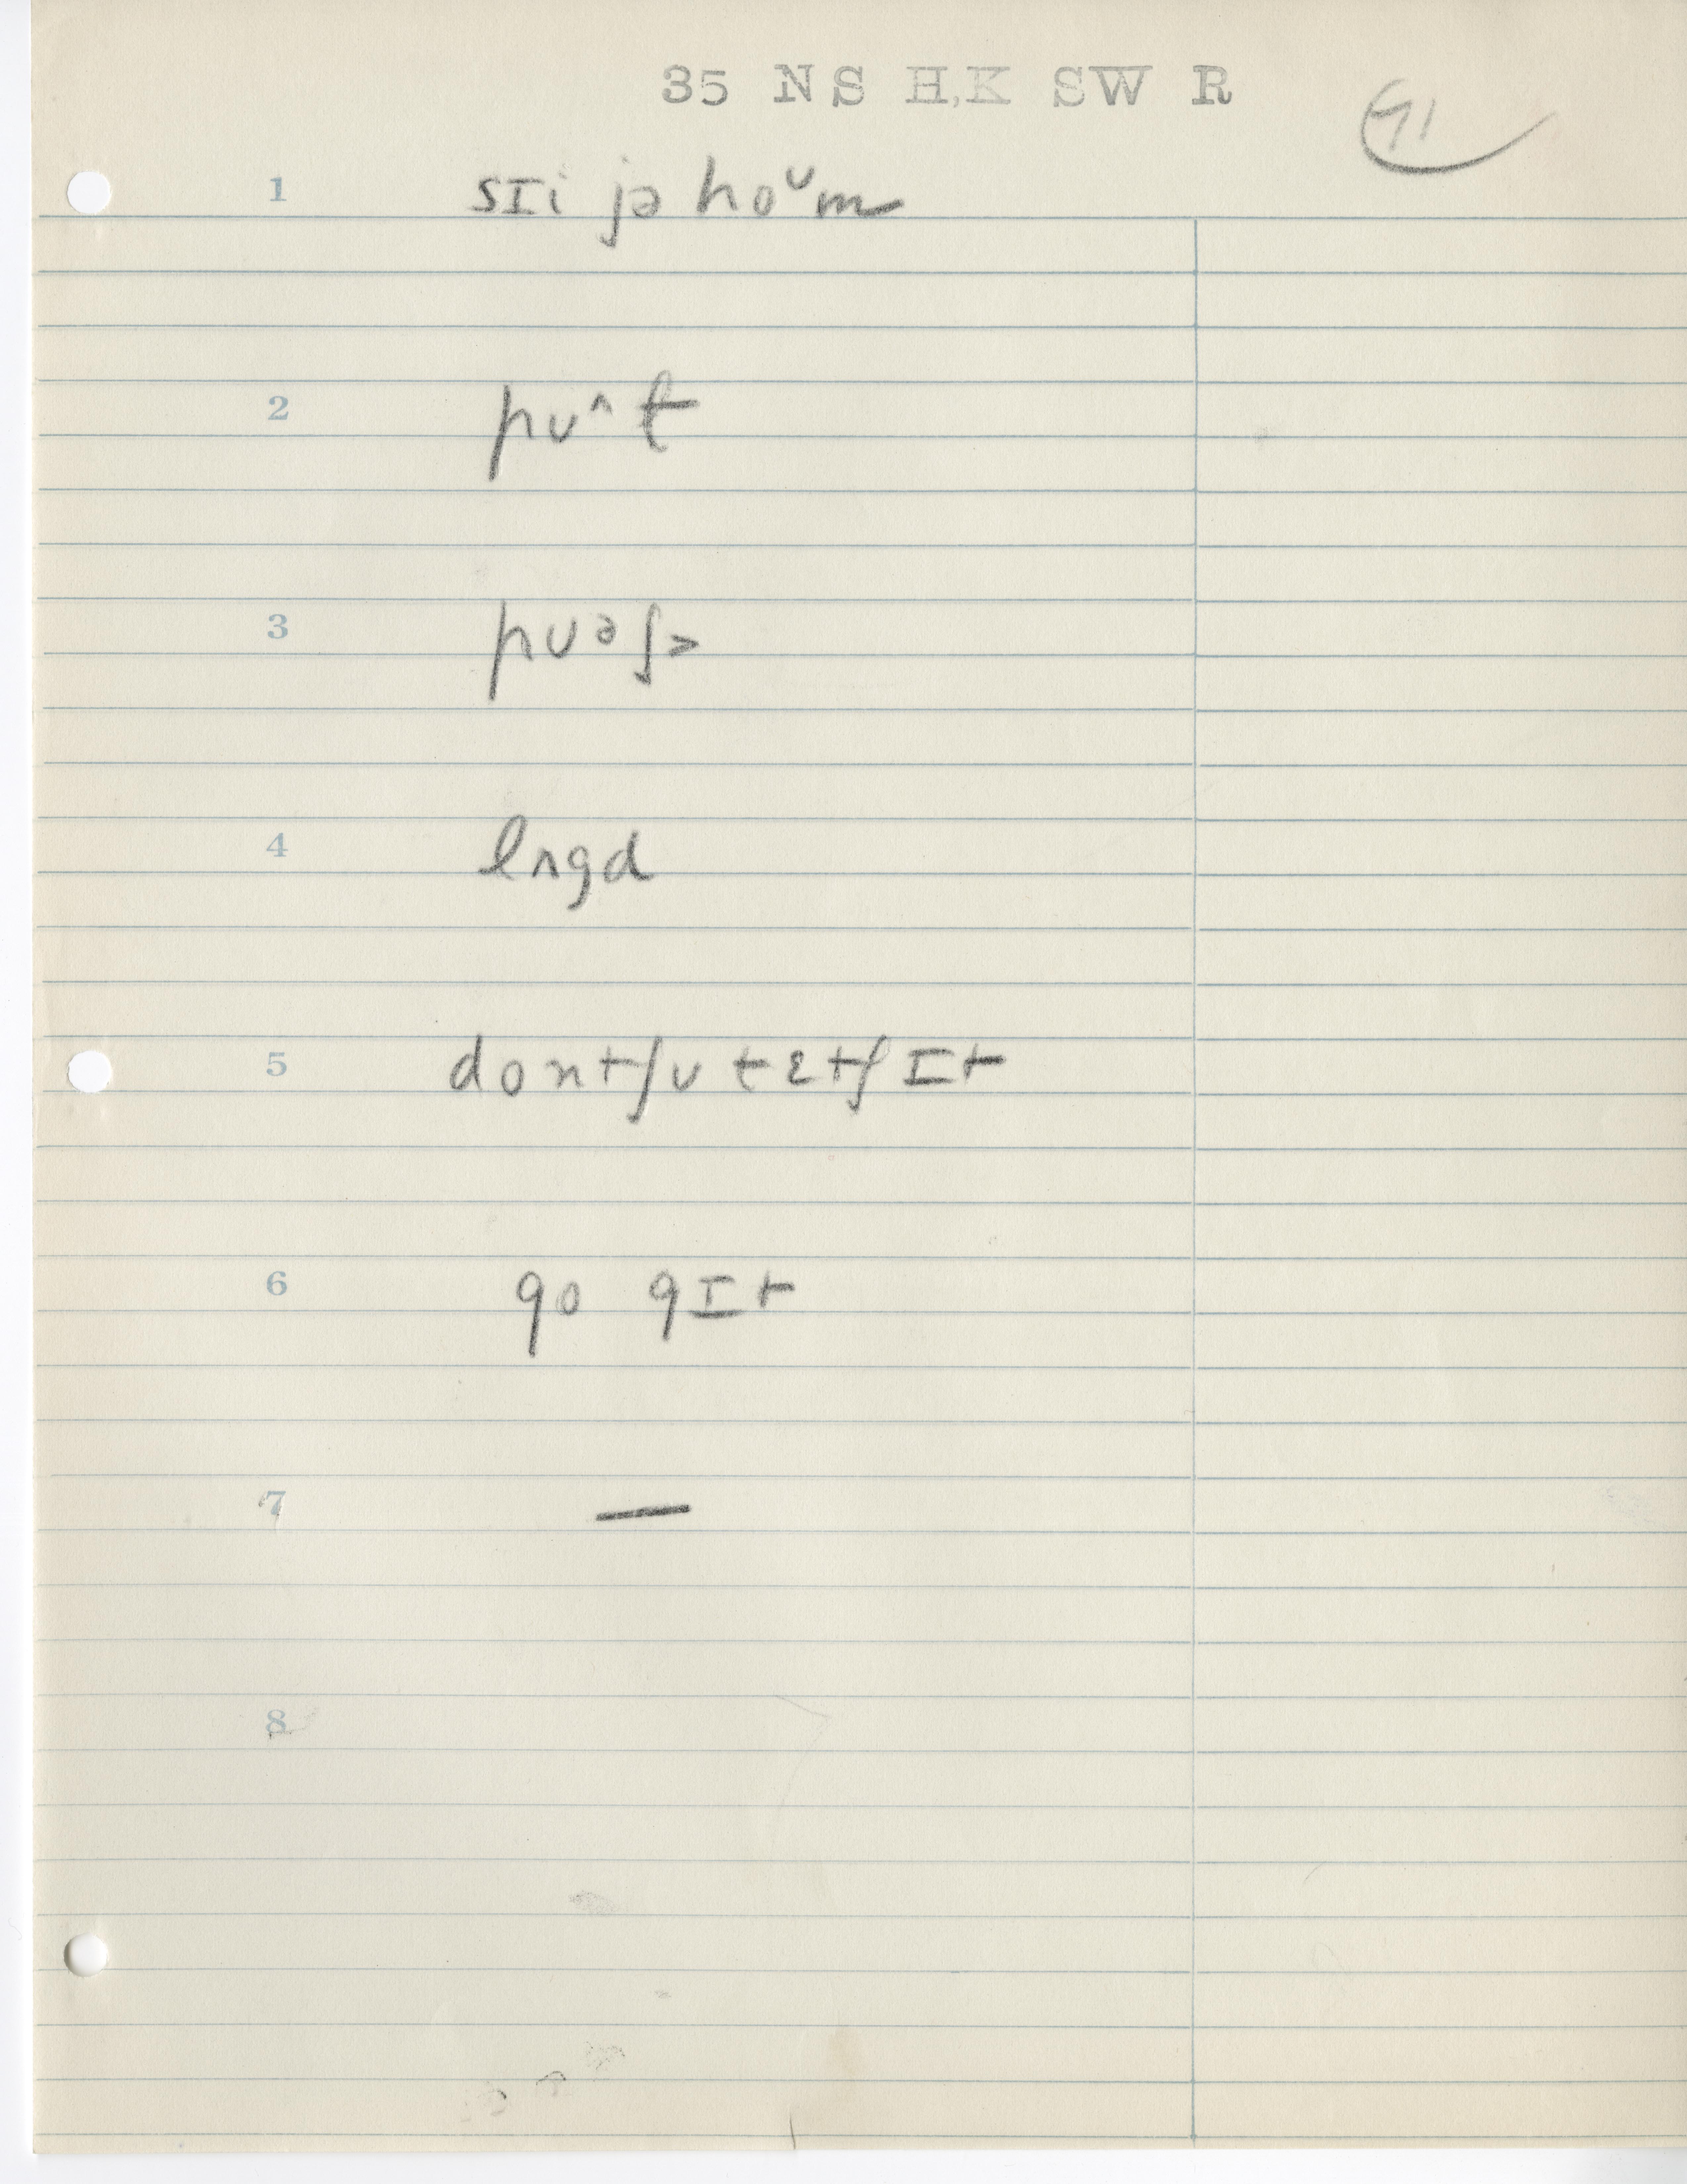 35 NS H,K SW R
91
1 sɪi jə hoᶷm
2 pʊ^t
3 pʊᵊʃə
4 lʌgd
5 dontʃʊ tɛtʃ ɪt
6 go gɪt
7 —
8